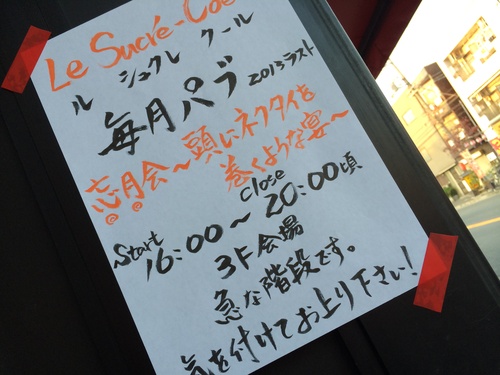 Le Sucré-Coe
ル シュクレ クール
毎月パブ 2013ラスト
忘月会〜頭にネクタイを
巻くような宴〜
Start Close
16:00〜20:00頃
3F会場
急な階段です。
気を付けてお上り下さい!